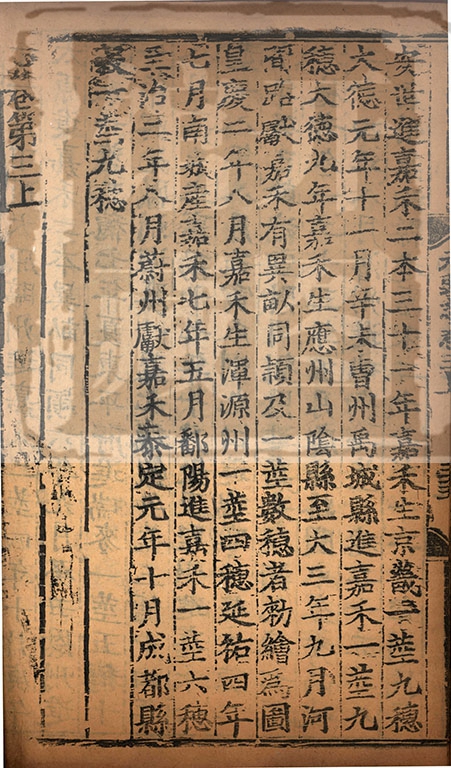 安進嘉禾二本三十一年嘉禾生京畿一莖九穗
大德元年十一月辛未曹州禹城縣進嘉禾一莖九
穗大德九年嘉禾生應州山陰縣至大三年九月河
間路獻嘉禾有異畝同頴及一莖數穗者勑繪為圖
皇慶二年八月嘉禾生渾源州一莖四穗延祐四年
七月南城産嘉禾七年五月鄱陽進嘉禾一莖六穗
至治二年八月蔚州獻嘉禾泰定元年十月成都縣
一莖九穗
卷第三上